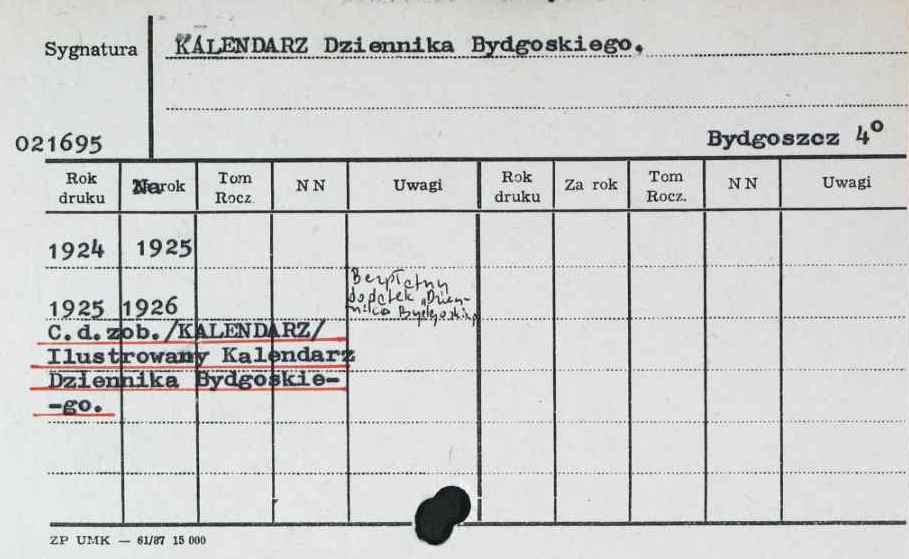 Sygnatura KALENDARZ Dziennika Bydgoskiego.
021695 Bydgoszcz 4°
Rok druku Na rok Tom Rocz. N N Uwagi Rok druku Za rok Tom Rocz. N N Uwagi
1924 1925
1925 1926
Bezpłatny
dodatek „Dzien-
nika Bydgoskieg
C.d.zob./KALENDARZ/
Ilustrowany Kalendarz
Dziennika Bydgoskie-
-go.
ZP UMK — 61/87 15 000